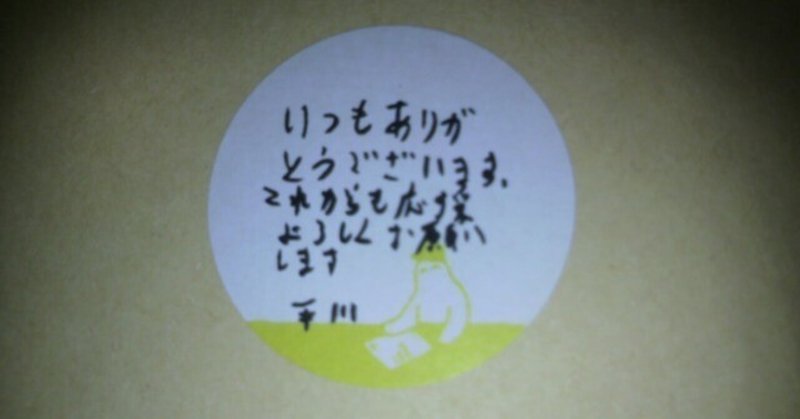 いつもありが
とうございます.
これからも応援
よろしくお願い
します
平川